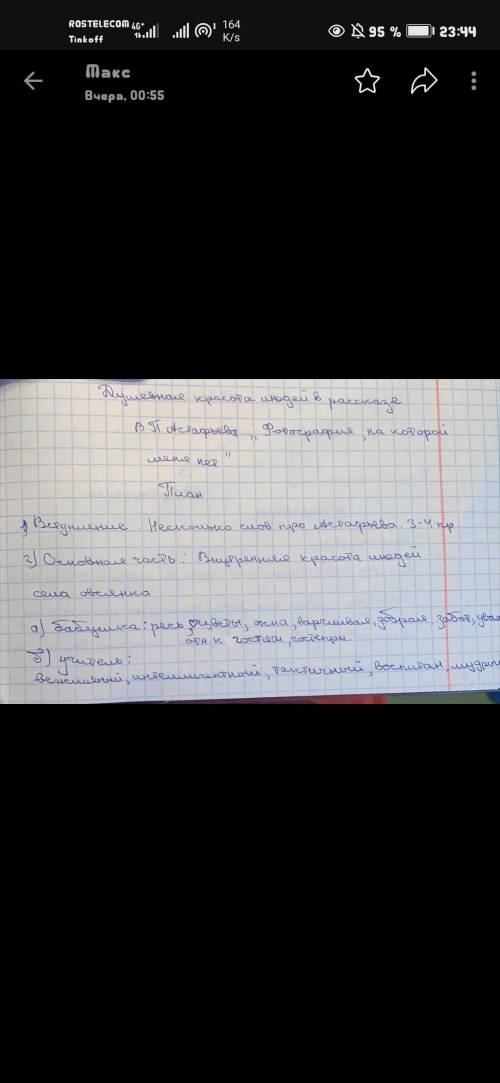 ROSTELECOM 4G+ 164 95 % 23:44
Tinkoff K/s
Макс
Вчера, 00:55
Душевная красота людей в рассказе
В П Астафьева „Фотография, на которой
меня нет"
План
1) Вступление. Несколько слов про Астафьева. 3-4 пр
2) Основная часть: Внутренняя красота людей
села овсянка
а) бабушка: речь, цветы, окна, ворчливая, добрая, забот, уваж
отн к гостям, гостепри.
б) учитель:
вежливый, интеллигентный, тактичный, воспитан, мудрый